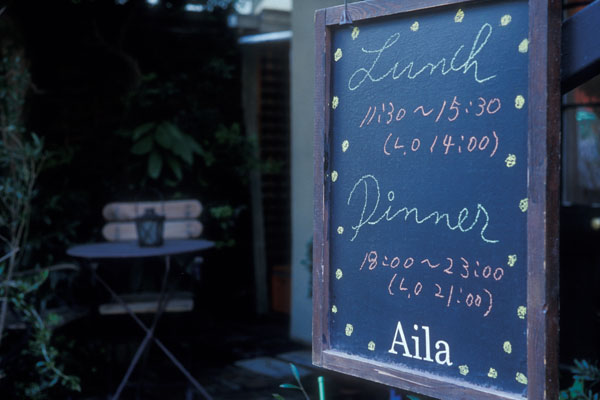 Lunch
11:30~15:30
(L.O 14:00)
Dinner
18:00~23:00
(L.O 21:00)
Aila